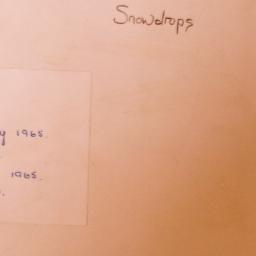 Snowdrops
y 1965.
1965.